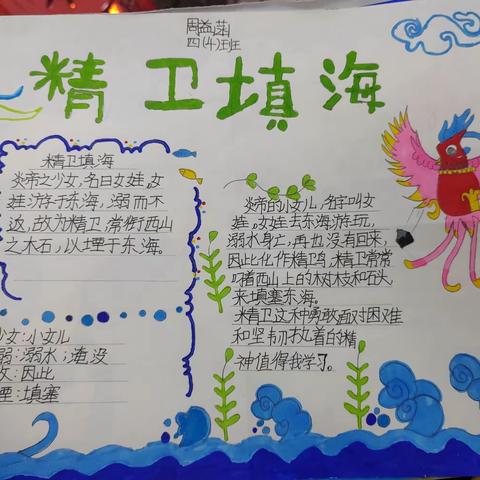 周益涵
四(4)班
精卫填海
精卫填海
炎帝之少女,名曰女娃,女
娃游于东海,溺而不
返,故为精卫,常衔西山
之木石,以堙于东海。
少女:小女儿
溺:溺水;淹没
故:因此
堙:填塞
炎帝的小女儿,名字叫女
娃,女娃去东海游玩,
溺水身亡,再也没有回来,
因此化作精卫鸟,精卫常常
叼着西山上的树枝和石头,
来填塞东海。
精卫这种勇敢面对困难
和坚韧执着的精
神值得我学习。